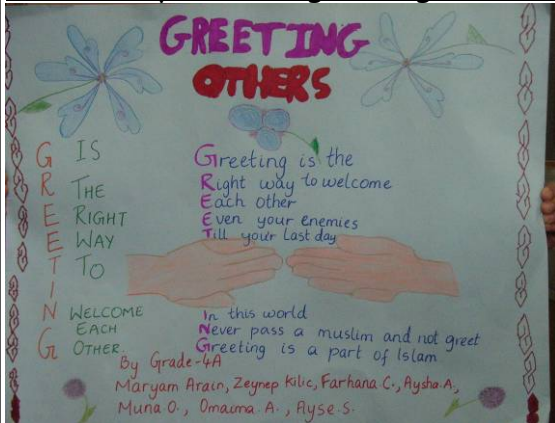 GREETING
OTHERS
GREETING
IS
THE
RIGHT
WAY
TO
WELCOME
EACH
OTHER.
Greeting is the
Right way to welcome
Each other
Even your enemies
Till your last day
In this world
Never pass a muslim and not greet
Greeting is a part of Islam
By Grade-4A
Maryam Arain, Zeynep Kilic, Farhana C., Aysha.A,
Muna O., Omaima.A., Ayse.S.